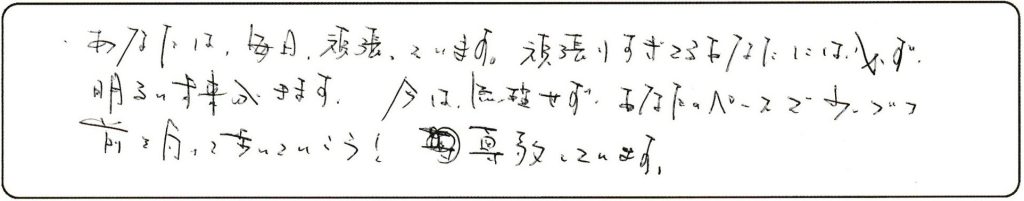 ・あなたは、毎日、頑張っています。頑張りすぎてるあなたには、必ず、
明るい未来がきます。 今は、無理せず、あなたのペースで少しづつ
前を向いて歩いていこう! しています。